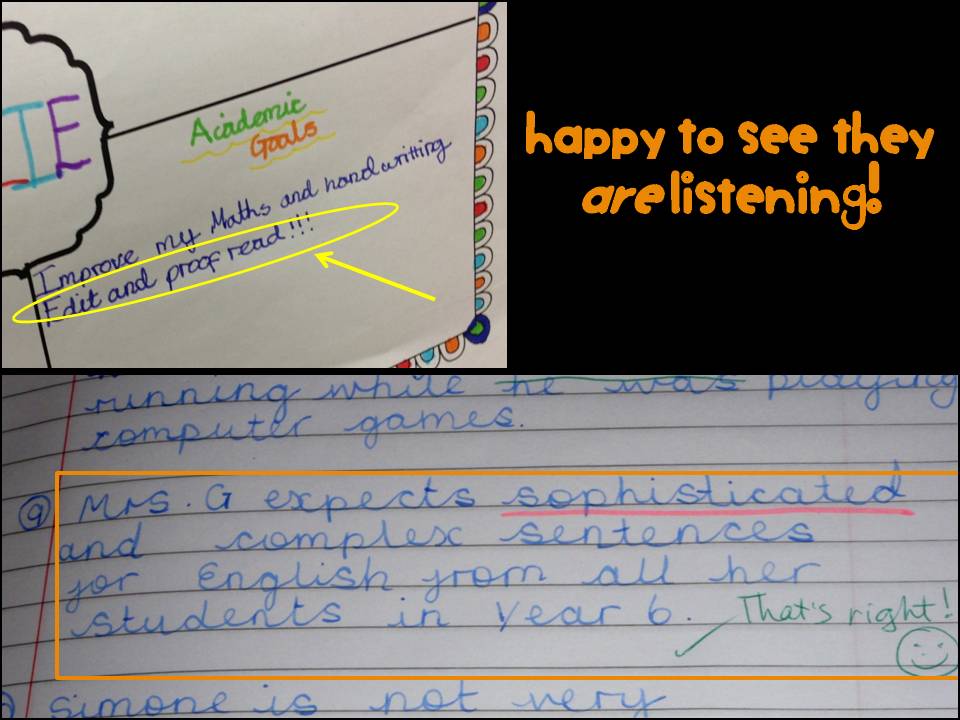 IE
Academic
Goals
Improve my Maths and handwritting
Edit and proof read!!!
happy to see they
are listening!
running while he was playing
computer games.
9 Mrs. G expects sophisticated
and complex sentences
for English from all her
students in Year 6. That's right!
simone is not very